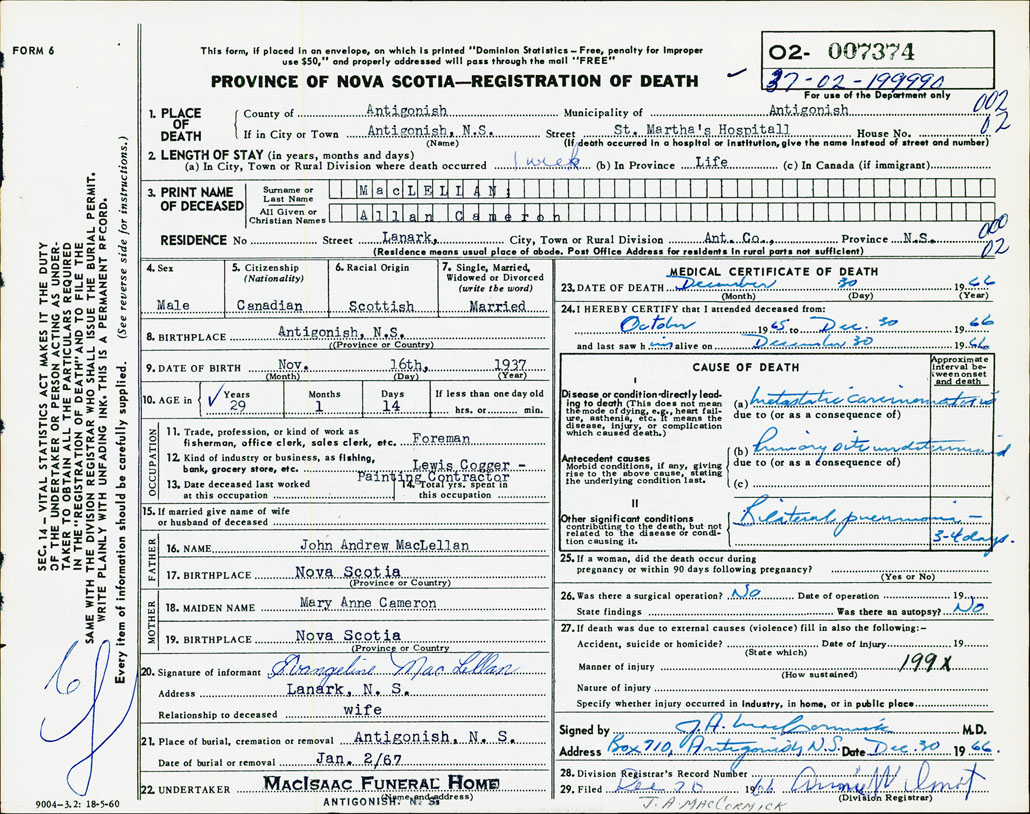 FORM 6
This form, if placed in an envelope, on which is printed "Dominion Statistics – Free, penalty for improper
use $50," and properly addressed will pass through the mail "FREE"
O2- 007374
37-02-199990
For use of the Department only
PROVINCE OF NOVA SCOTIA—REGISTRATION OF DEATH
002
02
1. PLACE OF DEATH
County of Antigonish Municipality of Antigonish
If in City or Town Antigonish, N.S. Street St. Martha's Hospitall House No.
(Name) (If death occurred in a hospital or institution, give the name instead of street and number)
2. LENGTH OF STAY (in years, months and days)
(a) In City, Town or Rural Division where death occurred 1 week (b) In Province Life (c) In Canada (if immigrant)
3. PRINT NAME OF DECEASED
Surname or Last Name MacLELLAN;
All Given or Christian Names Allan Cameron
000
02
RESIDENCE No Street Lanark, City, Town or Rural Division Ant. Co., Province N.S.
(Residence means usual place of abode. Post Office Address for residents in rural parts not sufficient)
4. Sex
Male
5. Citizenship
(Nationality)
Canadian
6. Racial Origin
Scottish
7. Single, Married,
Widowed or Divorced
(write the word)
Married
8. BIRTHPLACE Antigonish, N.S.
((Province or Country)
9. DATE OF BIRTH Nov. 16th, 1937
(Month) (Day) (Year)
10. AGE in ✓ Years Months Days If less than one day old
29 1 14 hrs. or min.
OCCUPATION
11. Trade, profession, or kind of work as
fisherman, office clerk, sales clerk, etc. Foreman
12. Kind of industry or business, as fishing,
bank, grocery store, etc. Lewis Cogger -
Painting Contractor
13. Date deceased last worked
at this occupation
14. Total yrs. spent in
this occupation
15. If married give name of wife
or husband of deceased
FATHER
16. NAME John Andrew MacLellan
17. BIRTHPLACE Nova Scotia
(Province or Country)
MOTHER
18. MAIDEN NAME Mary Anne Cameron
19. BIRTHPLACE Nova Scotia
(Province or Country)
20. Signature of informant Evangeline MacLellan
Address Lanark, N. S.
Relationship to deceased wife
21. Place of burial, cremation or removal Antigonish, N. S.
Date of burial or removal Jan. 2/67
22. UNDERTAKER MacIsaac Funeral Home
(Name and address)
ANTIGONISH, N. S.
MEDICAL CERTIFICATE OF DEATH
23. DATE OF DEATH December 30 1966
(Month) (Day) (Year)
24. I HEREBY CERTIFY that I attended deceased from:
October 1965 to Dec. 30 1966
and last saw him alive on December 30 1966
CAUSE OF DEATH
Approximate
interval be-
tween onset
and death
I
Disease or condition directly lead-
ing to death (This does not mean
the mode of dying, e.g., heart fail-
ure, asthenia, etc. It means the
disease, injury, or complication
which caused death.)
(a) metastatic carcinomatosis
due to (or as a consequence of)
Antecedent causes
Morbid conditions, if any, giving
rise to the above cause, stating
the underlying condition last.
(b) primary site undetermined
due to (or as a consequence of)
(c)
II
Other significant conditions
contributing to the death, but not
related to the disease or condi-
tion causing it.
Bilateral pneumonia –
3-4 days.
25. If a woman, did the death occur during
pregnancy or within 90 days following pregnancy?
(Yes or No)
26. Was there a surgical operation? No Date of operation 19
State findings Was there an autopsy? No
27. If death was due to external causes (violence) fill in also the following:–
Accident, suicide or homicide? Date of injury 19
(State which)
Manner of injury 199X
(How sustained)
Nature of injury
Specify whether injury occurred in industry, in home, or in public place
Signed by J.A. MacCormick M.D.
Address Box 710, Antigonish, N.S. Date Dec. 30 1966.
28. Division Registrar's Record Number
29. Filed Dec 30 1966
(Division Registrar)
J. A MACCORMICK
SEC. 14– VITAL STATISTICS ACT MAKES IT THE DUTY
OF THE UNDERTAKER OR PERSON ACTING AS UNDER-
TAKER TO OBTAIN ALL THE PARTICULARS REQUIRED
IN THE "REGISTRATION OF DEATH" AND TO FILE THE
SAME WITH THE DIVISION REGISTRAR WHO SHALL ISSUE THE BURIAL PERMIT.
WRITE PLAINLY WITH UNFADING INK. THIS IS A PERMANENT RECORD.
Every item of information should be carefully supplied. (See reverse side for instructions.)
9004-3.2: 18-5-60